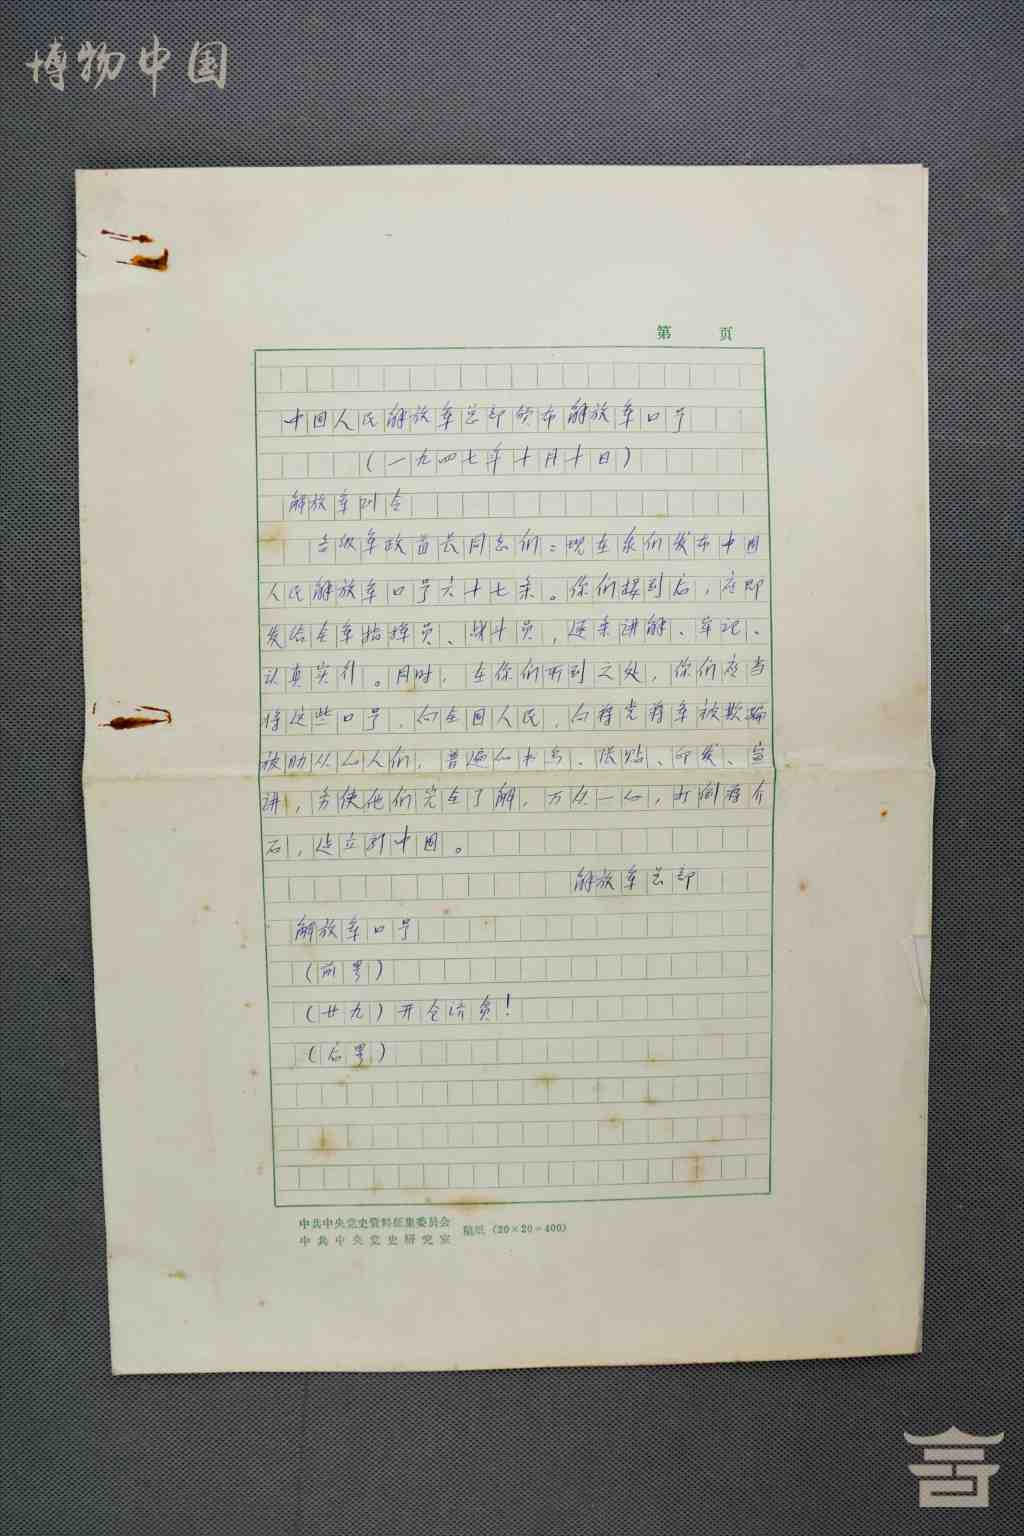 博物中国
第 页
中国人民解放军总部颁布解放军口号
(一九四七年十月十日)
解放军训令
各级军政首长同志们：现在我们发布中国
人民解放军口号六十七条。你们接到后，应即
发给全军指挥员、战斗员，逐条讲解、牢记、
认真实行。同时，在你们所到之处，你们应当
将这些口号，向全国人民，向蒋党蒋军被欺骗
被胁从的人们，普遍的书写、张贴、印发、宣
讲，务使他们完全了解，万众一心，打倒蒋介
石，建立新中国。
解放军总部
解放军口号
(前略)
(廿九)开仓济贫！
(后略)
中共中央党史资料征集委员会
中共中央党史研究室
稿纸 (20×20=400)